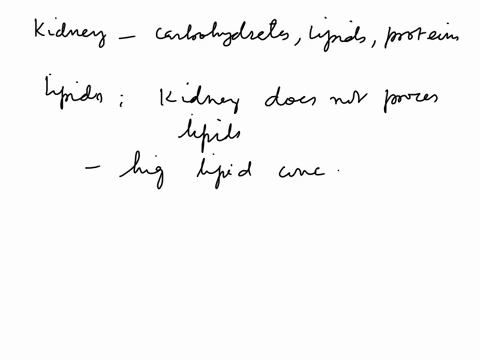 Kidney - carbohydrates, lipids, proteins
Lipids : Kidney does not proces
lipids
- hig lipid conc.